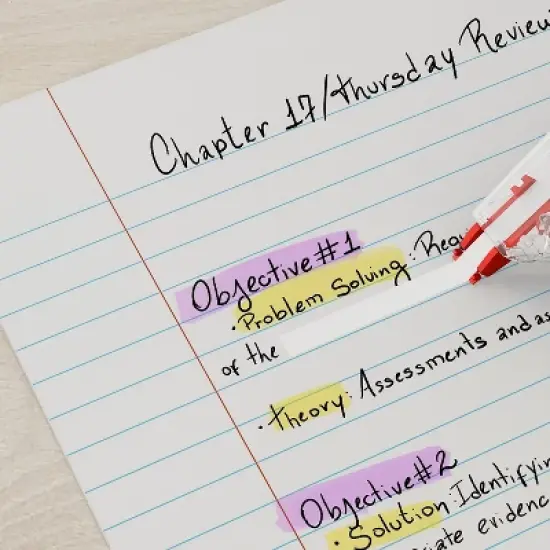 Chapter 17/Thursday Review
Objective #1
• Problem Solving: Req
of the
• Theory: Assessments and as
Objective #2
• Solution: Identifyin
ciate evidenc